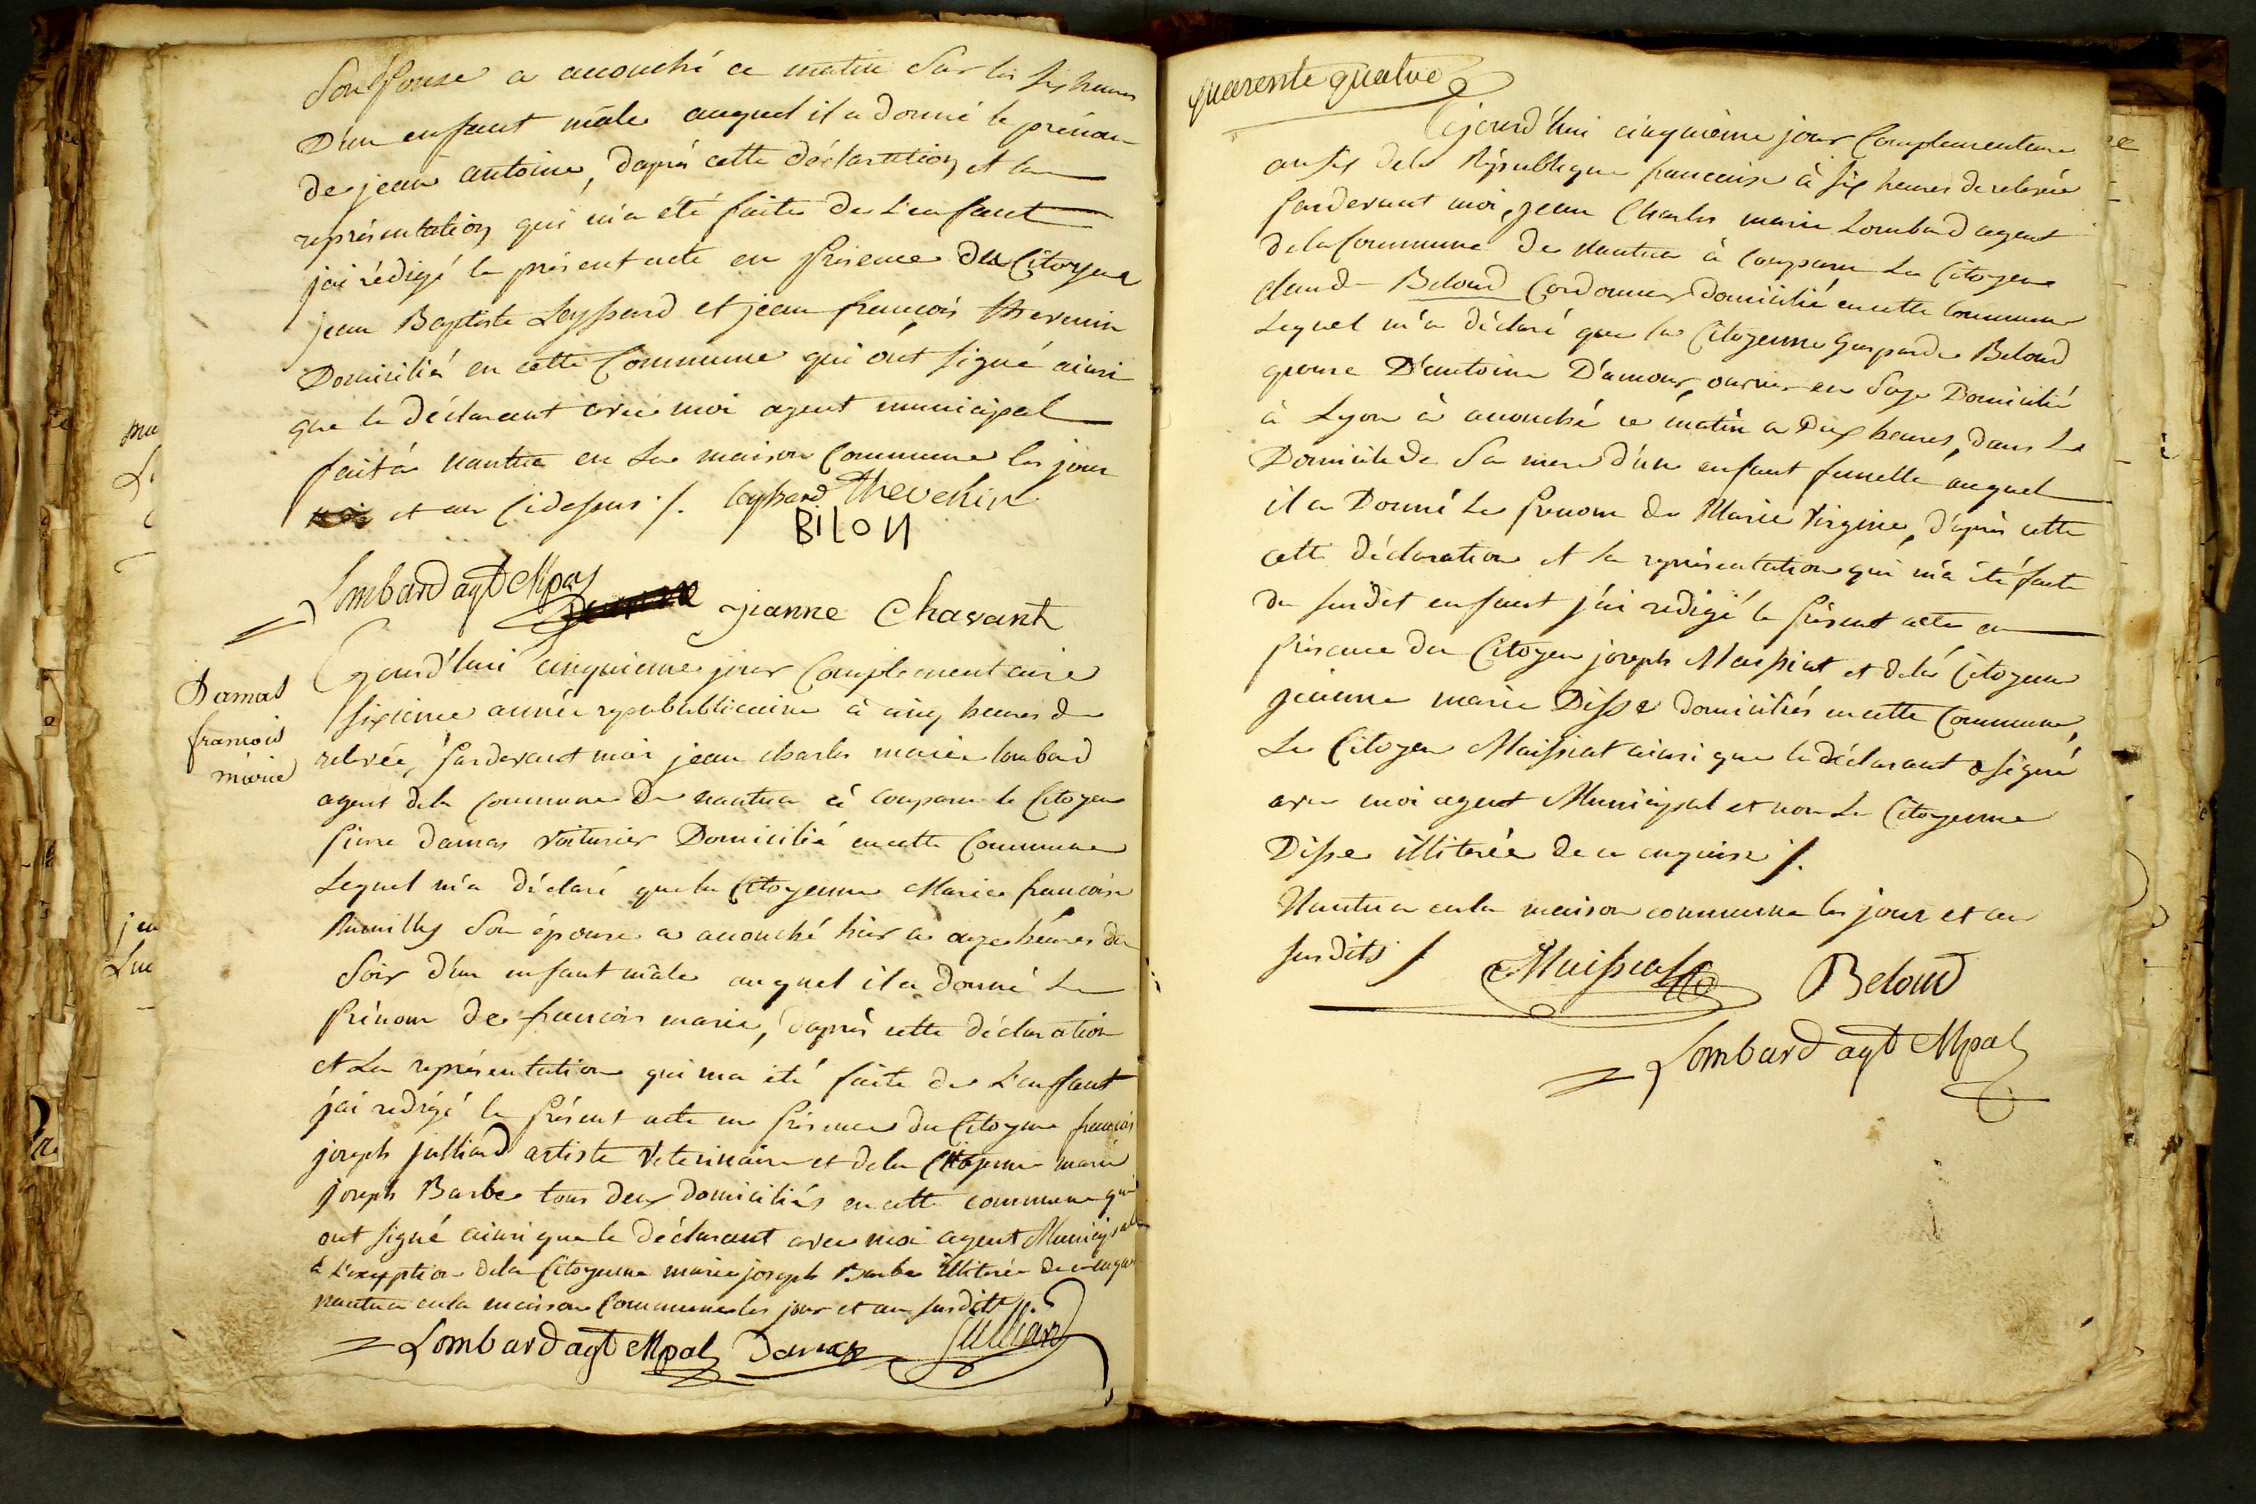 Son Épouse a accouché ce matin Sur les six heures
D'un enfant mâle auquel il a donné le prénom
de jean antoine, d'apres cette déclaration et la
représentation qui m'a été faite de L'enfant
j'ai rédigé le présent acte en présence des Citoyens
jean Baptiste Leyssard et jean françois thevenin
Domiciliés en cette Commune qui ont signé ainsi
que le déclarant avec moi agent municipal
fait à nantua en La maison Commune les jour
et an Cidessus /. leyssard Thevenin
BILON
Lombard agt Mpal
jeanne Chavant
Damas
francois
marie
Ojourd'hui cinquieme jour Complementaire
sixieme année republicaine à cinq heures de
relevée, pardevant moi jean charles marie lombard
agent dela commune De nantua à comparu le Citoyen
pierre damas voiturier Domicilié en cette Commune
Lequel m'a déclaré que la Citoyenne Marie francoise
Rumilly Son épouse a accouché hier a onze heures du
Soir d'un enfant mâle auquel il a donné Le
Prénom De francois marie, d'après cette déclaration
et La représentation qui ma été faite de L'enfant
j'ai redigé le présent acte en présence du Citoyen francois
joseph julliard artiste Veterinaire et dela Citoyenne marie
joseph Barbe tous deux domiciliés en cette commune qui
ont signé ainsi que le déclarant avec moi agent Municipal
à L'exception dela Citoyenne marie joseph Barbe illiterée de ce enquise
nantua enla maison Commune les jour et an susdits /.
Lombard agt Mpal Damas Julliard
quarente quatre
Ojourd'hui cinquième jour Complementaire
an six dela République francaise à six heures de relevée
pardevant moi, jean Charles marie Lombard agent
dela Commune de nantua à comparu Le Citoyen
claude Beloud Cordonnier domicilié en cette Commune
Lequel m'a déclaré que la Citoyenne Gasparde Beloud
epouse D'antoine D'amour, ouvrier en Soye Domicilié
à Lyon à accouché ce matin a Dix heures, dans Le
Domicile de Sa mere d'un enfant femelle auquel
il a Donné Le prenom de Marie Virginie, d'après cette
cette déclaration et la représentation qui m'a été faite
du susdit enfant j'ai redigé le présent acte en
présence du Citoyen joseph Maissiat et dela Citoyenne
jeanne marie Disse domiciliés en cette Commune,
Le Citoyen Maissiat ainsi que le déclarant a signé
avec moi agent Municipal et non La Citoyenne
Disse illiterée de ce enquise /.
Nantua enla maison commune les jour et an
susdits /. Maissiat Beloud
Lombard agt Mpal